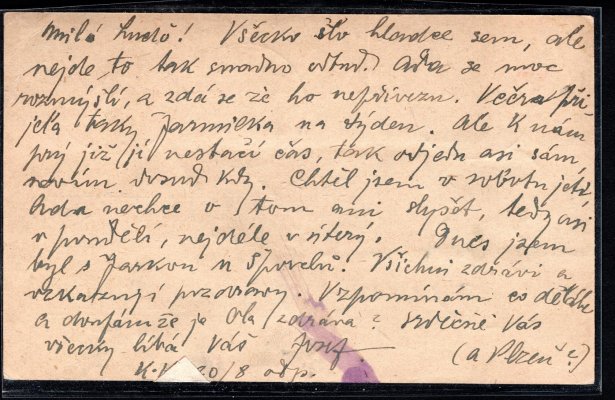 Milá Lído! Všecko šlo hladce sem, ale
nejde to tak snadno odtud. Ada se moc
rozmýšlí, a zdá se že ho nepřivezu. Včera při-
jela taky Jarmilka na týden. Ale k nám
prý již jí nestačí čas, tak odjedu asi sám,
nevím dosud kdy. Chtěl jsem v sobotu jeti
Ada nechce o tom ani slyšet, tedy asi
v pondělí, nejdéle v úterý. Dnes jsem
byl s Jarkou u. Všichni zdrávi a
vzkazují pozdravy. Vzpomínám co děláte
a doufám že je zdráva? Srdečně Vás
všecky líbá Váš Josef
(a Plzeň?)
20/8 odp.